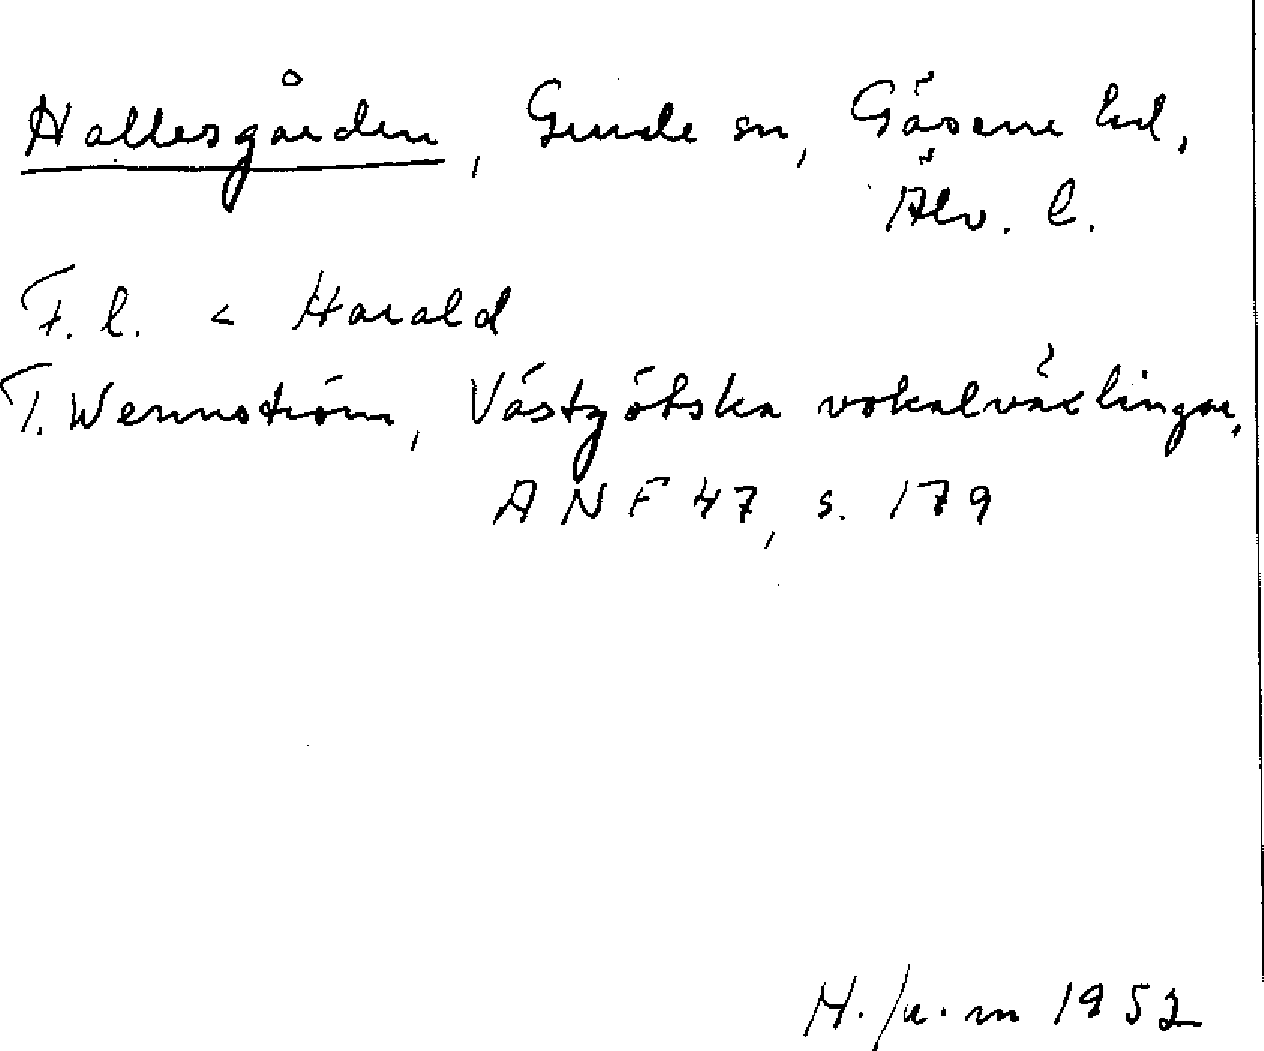 Hallesgården, Grude sn, Gäsene hd,
Älv. l.
F. l. < Harald
T. Wennström, Västgötska vokalväxlingar,
ANF 47, s. 179
1952